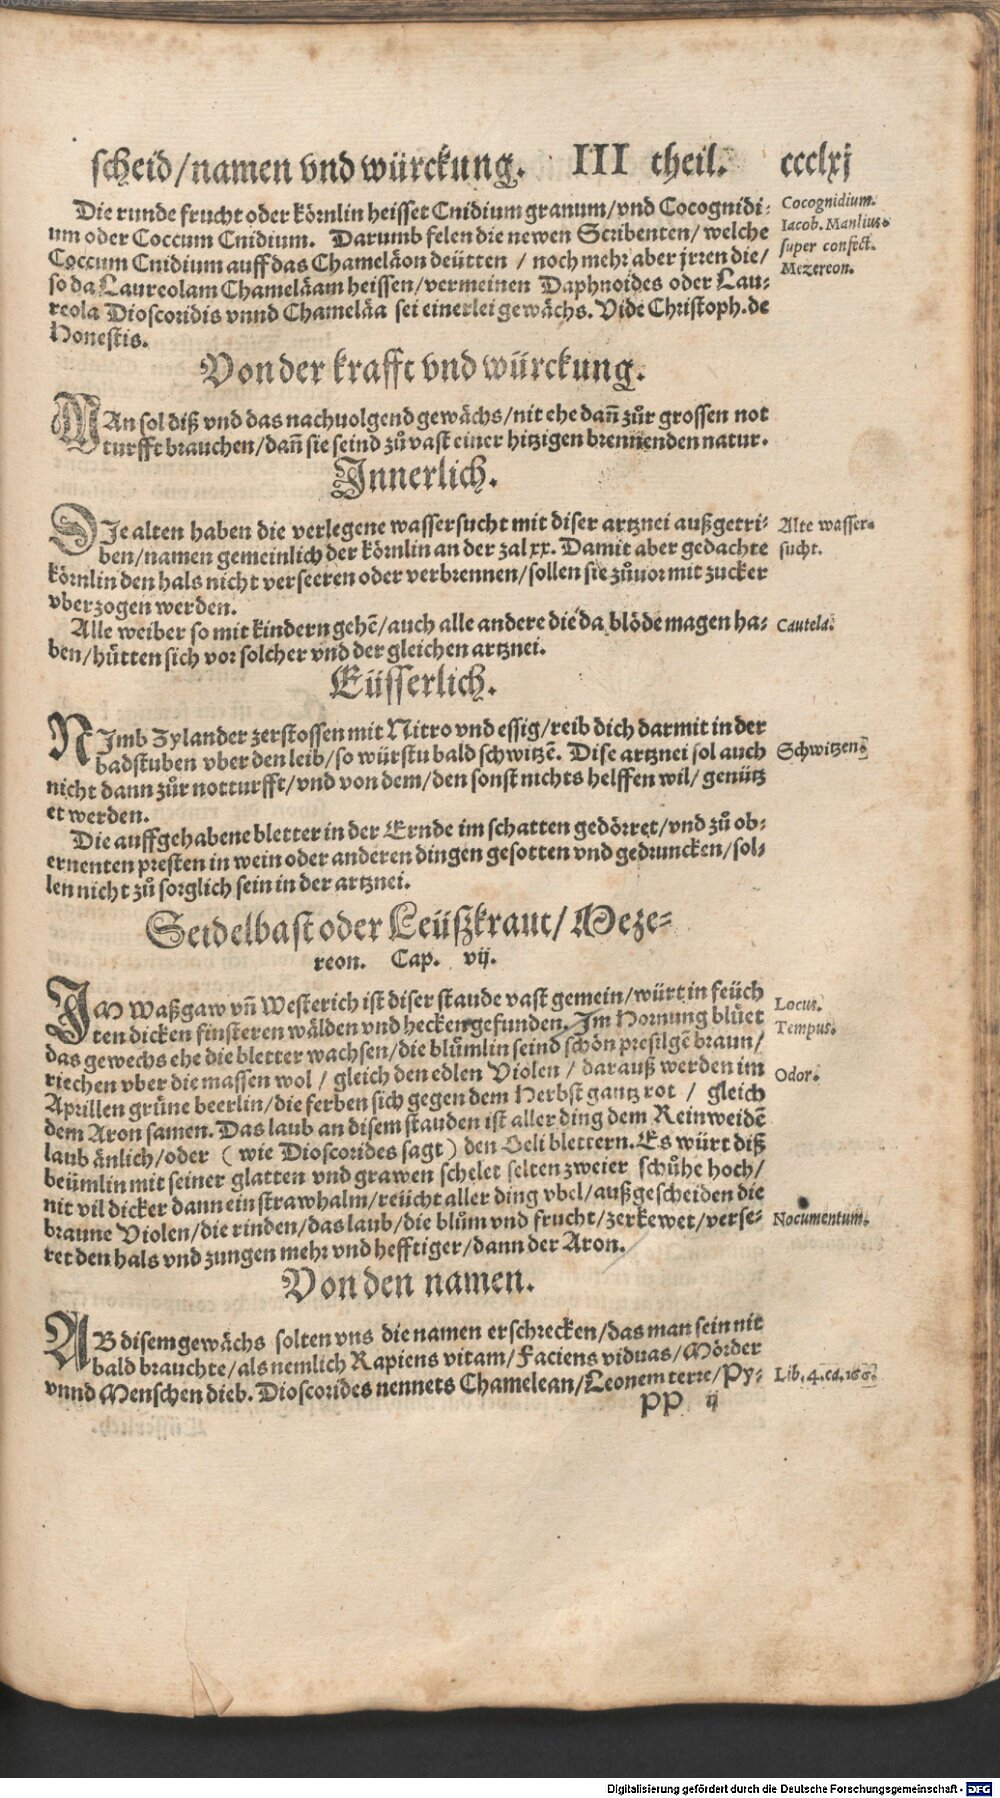 scheid/namen vnd würckung. III theil. ccclxj
Die runde frucht oder körnlin heisset Cnidium granum/vnd Cocognidi-
um oder Coccum Cnidium. Darumb felen die newen Scribenten/welche
Coccum Cnidium auff das Chameläon deütten / noch mehr aber jrren die/
so da Laureolam Chameläam heissen/vermeinen Daphnoides oder Lau-
reola Dioscoridis vnnd Chameläa sei einerlei gewächs. Vide Christoph. de
Honestis.
Cocognidium.
Iacob. Manlius.
super confect.
Mezereon.
Von der krafft vnd würckung.
MAn sol diß vnd das nachuolgend gewächs/nit ehe dañ zůr grossen not
turfft brauchen/dañ sie seind zů vast einer hitzigen brennenden natur.
Innerlich.
DIe alten haben die verlegene wassersucht mit diser artznei außgetri-
ben/namen gemeinlich der körnlin an der zal xx. Damit aber gedachte
körnlin den hals nicht verseeren oder verbrennen/sollen sie zůuor mit zucker
vberzogen werden.
Alte wasser-
sucht.
Alle weiber so mit kindern gehē/auch alle andere die da blöde magen ha-
ben/hütten sich vor solcher vnd der gleichen artznei.
Cautela.
Eüsserlich.
NImb Zylander zerstossen mit Nitro vnd essig/reib dich darmit in der
badstuben vber den leib/so würstu bald schwitzē. Dise artznei sol auch
nicht dann zůr notturfft/vnd von dem/den sonst nichts helffen wil/genütz
et werden.
Schwitzen.
Die auffgehabene bletter in der Ernde im schatten gedörret/vnd zů ob-
ernenten presten in wein oder anderen dingen gesotten vnd gedruncken/sol-
len nicht zů sorglich sein in der artznei.
Seidelbast oder Leüßkraut/Meze-
reon. Cap. vij.
IM Waßgaw vñ Westerich ist diser staude vast gemein/würt in feüch
ten dicken finsteren wälden vnd hecken gefunden. Im Hornung blüet
das gewechs ehe die bletter wachsen/die blůmlin seind schön presilgē braun/
riechen vber die massen wol / gleich den edlen Violen / darauß werden im
Aprillen grüne beerlin/die ferben sich gegen dem Herbst gantz rot / gleich
dem Aron samen. Das laub an disem stauden ist aller ding dem Reinweidē
laub änlich/oder ( wie Dioscorides sagt ) den Oeli blettern. Es würt diß
beümlin mit seiner glatten vnd grawen schelet selten zweier schůhe hoch/
nit vil dicker dann ein strawhalm/reücht aller ding vbel/außgescheiden die
braune Violen/die rinden/das laub/die blům vnd frucht/zerkewet/verse-
ret den hals vnd zungen mehr vnd hefftiger/dann der Aron.
Locus.
Tempus.
Odor.
Nocumentum.
Von den namen.
AB disem gewächs solten vns die namen erschrecken/das man sein nit
bald brauchte/als nemlich Rapiens vitam/Faciens viduas/Mörder
vnnd Menschen dieb. Dioscorides nennets Chamelean/Leonem terre/Py-
Lib. 4. ca. 166.
PP ij
Digitalisierung gefördert durch die Deutsche Forschungsgemeinschaft - DFG